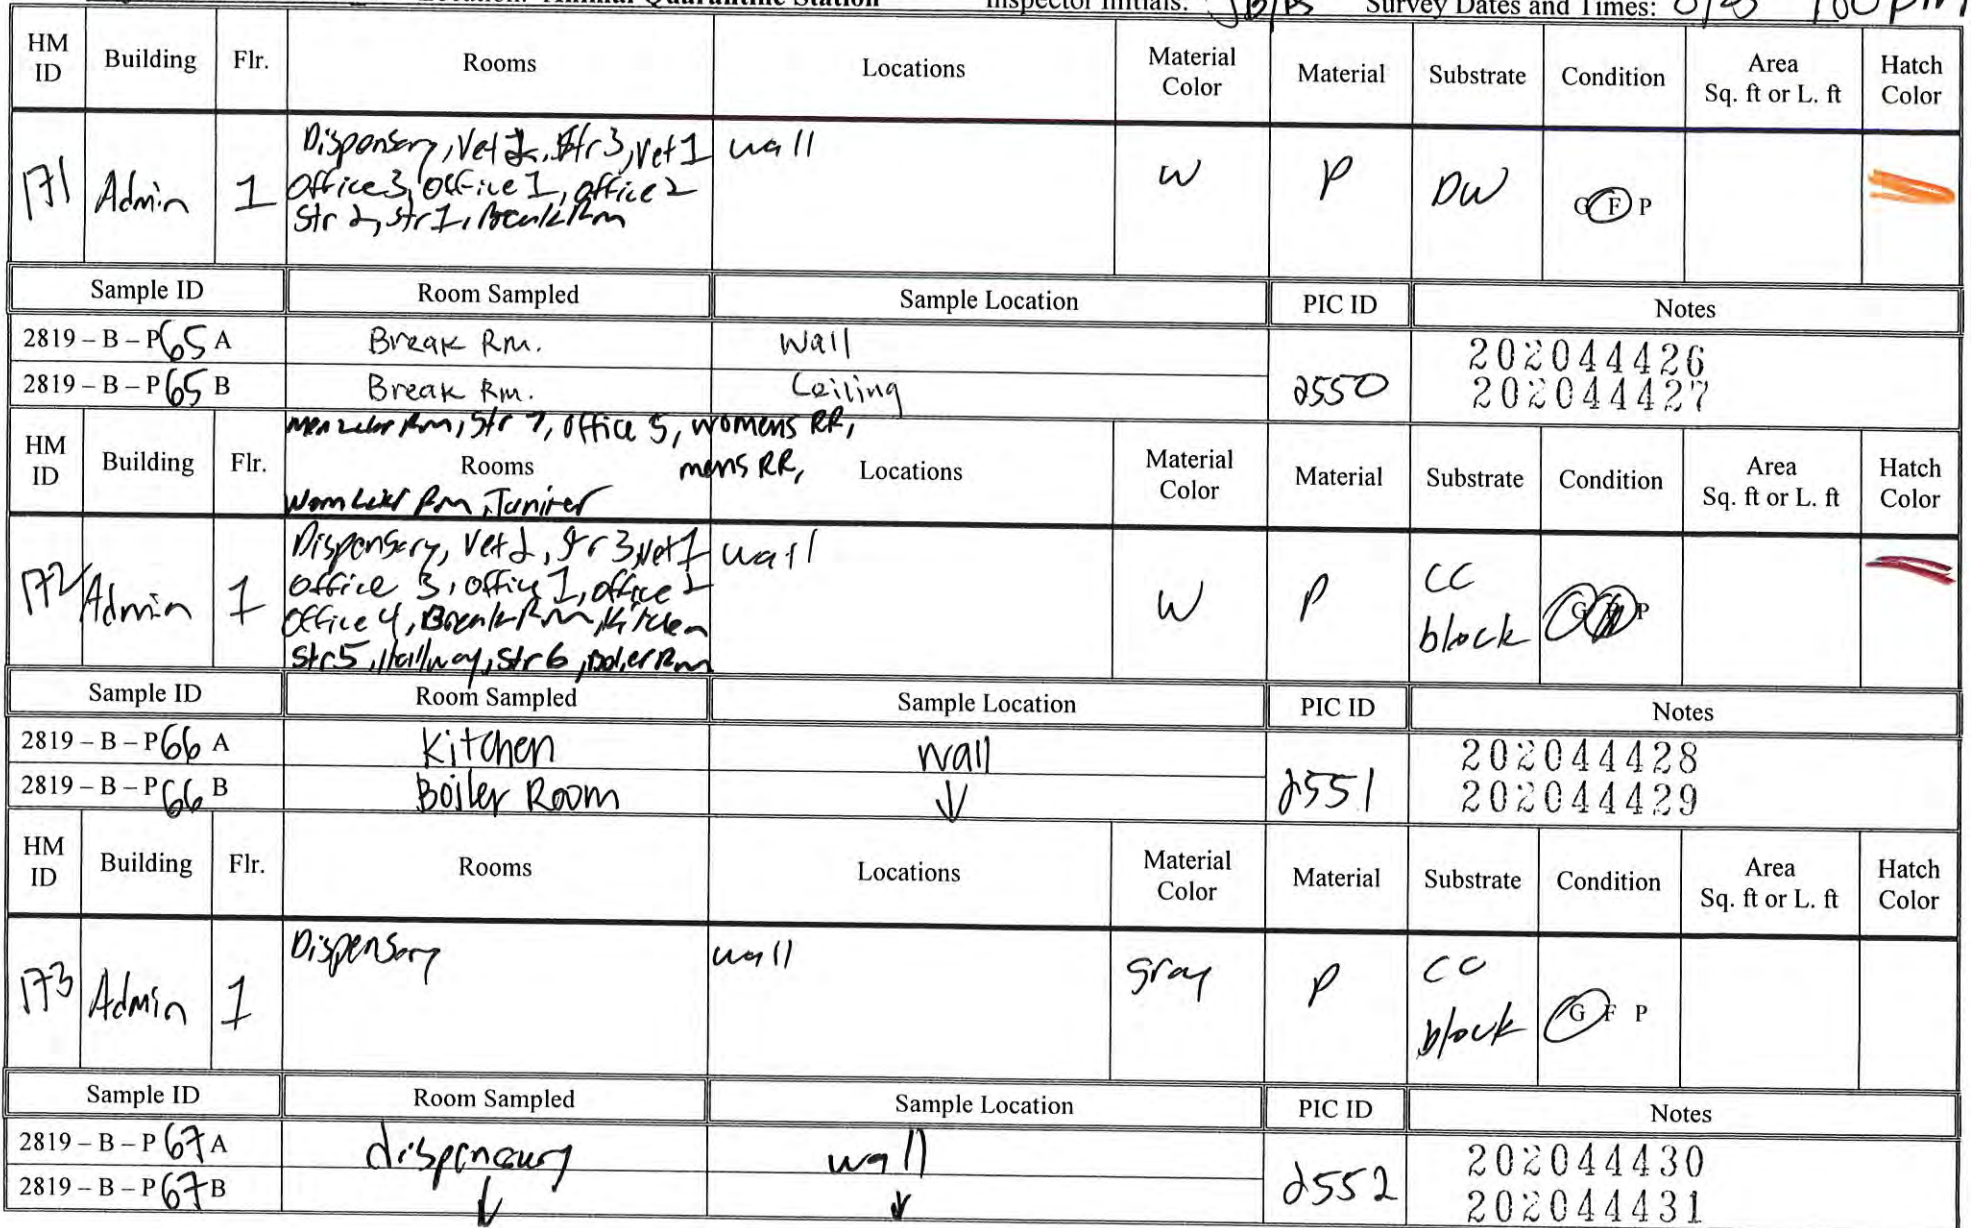 Location: Animal Quarantine Station Inspector Initials: Survey Dates and Times: 100pm
HM ID Building Flr. Rooms Locations Material Color Material Substrate Condition Area Sq. ft or L. ft Hatch Color
171 Admin 1 wall W P DW G F P
Dispensary, Vet 2, Str 3, Vet 1
Office 3, Office 1, office 2
Str 2, Str 1, Break Rm
Sample ID Room Sampled Sample Location PIC ID Notes
2819 – B – P65 A Break Rm. Wall 2550 202044426
2819 – B – P65 B Break Rm. Ceiling 202044427
Rm, Str 7, Office 5, womens RR,
mens RR,
HM ID Building Flr. Rooms Locations Material Color Material Substrate Condition Area Sq. ft or L. ft Hatch Color
Rm, Janiter
172 Admin 1 wall W P CC block G F P
Dispensary, Vet 2, Str 3, Vet 1
office 3, office 1, office 2
Office 4, Break Rm, Kitchen
Str 5, Hallway, Str 6, Boiler Rm
Sample ID Room Sampled Sample Location PIC ID Notes
2819 – B – P66 A Kitchen Wall 2551 202044428
2819 – B – P66 B Boiler Room ↓ 202044429
HM ID Building Flr. Rooms Locations Material Color Material Substrate Condition Area Sq. ft or L. ft Hatch Color
173 Admin 1 Dispensary wall gray P CC block G F P
Sample ID Room Sampled Sample Location PIC ID Notes
2819 – B – P 67 A wall 2552 202044430
2819 – B – P 67 B ↓ ↓ 202044431